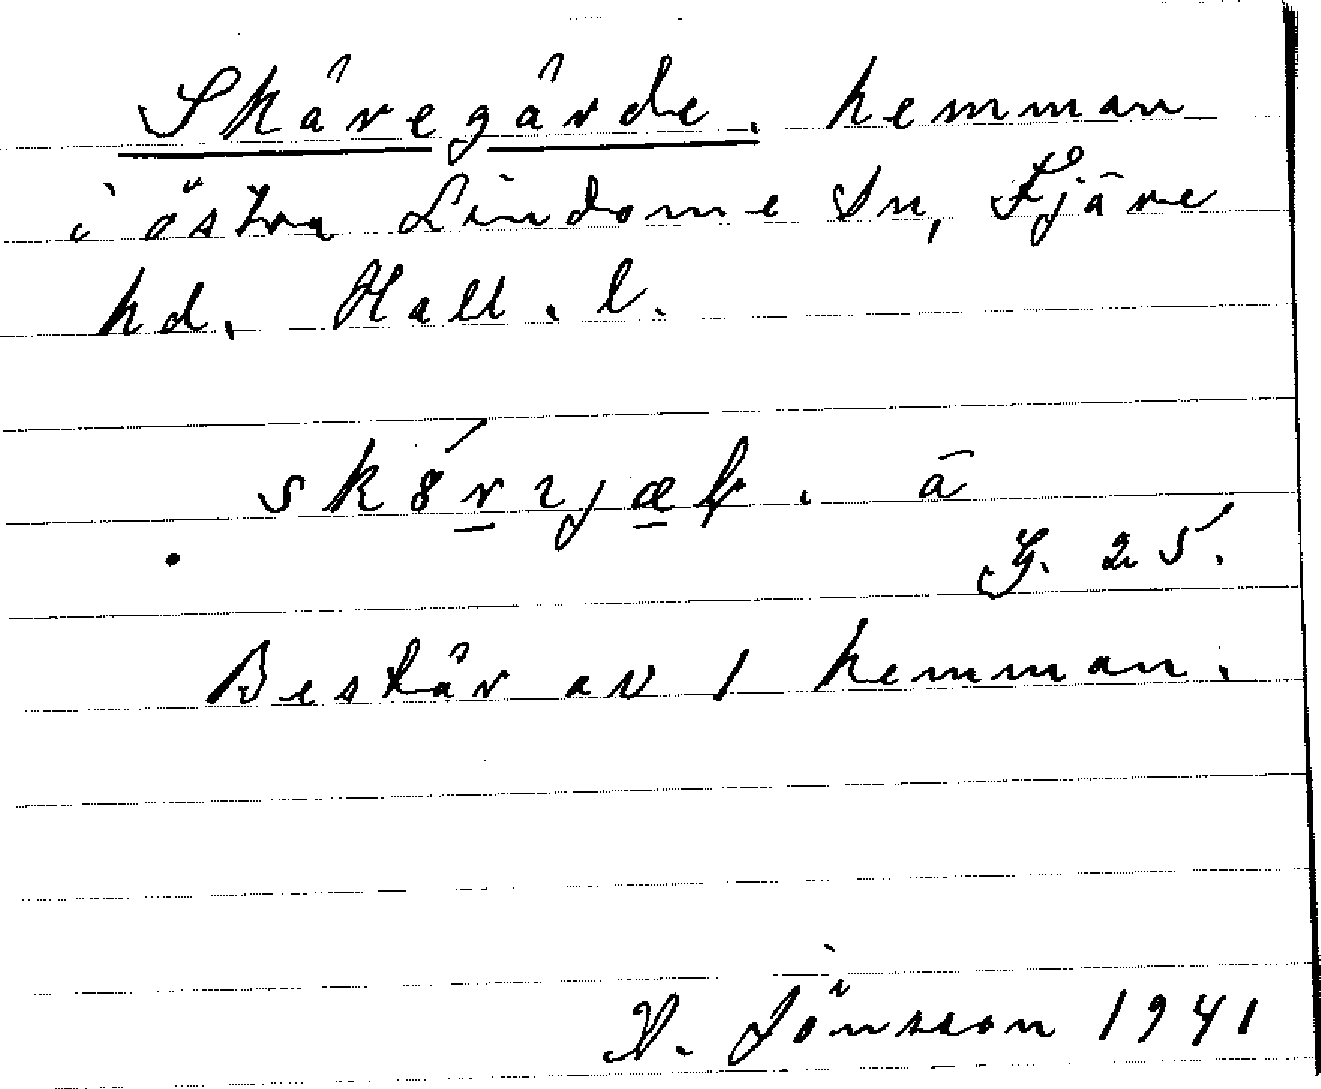 Skåregårde. hemman
i östra Lindome sn, Fjäre
hd. Hall. l.
ā
G. 25.
Består av 1 hemman.
Jönsson 1941